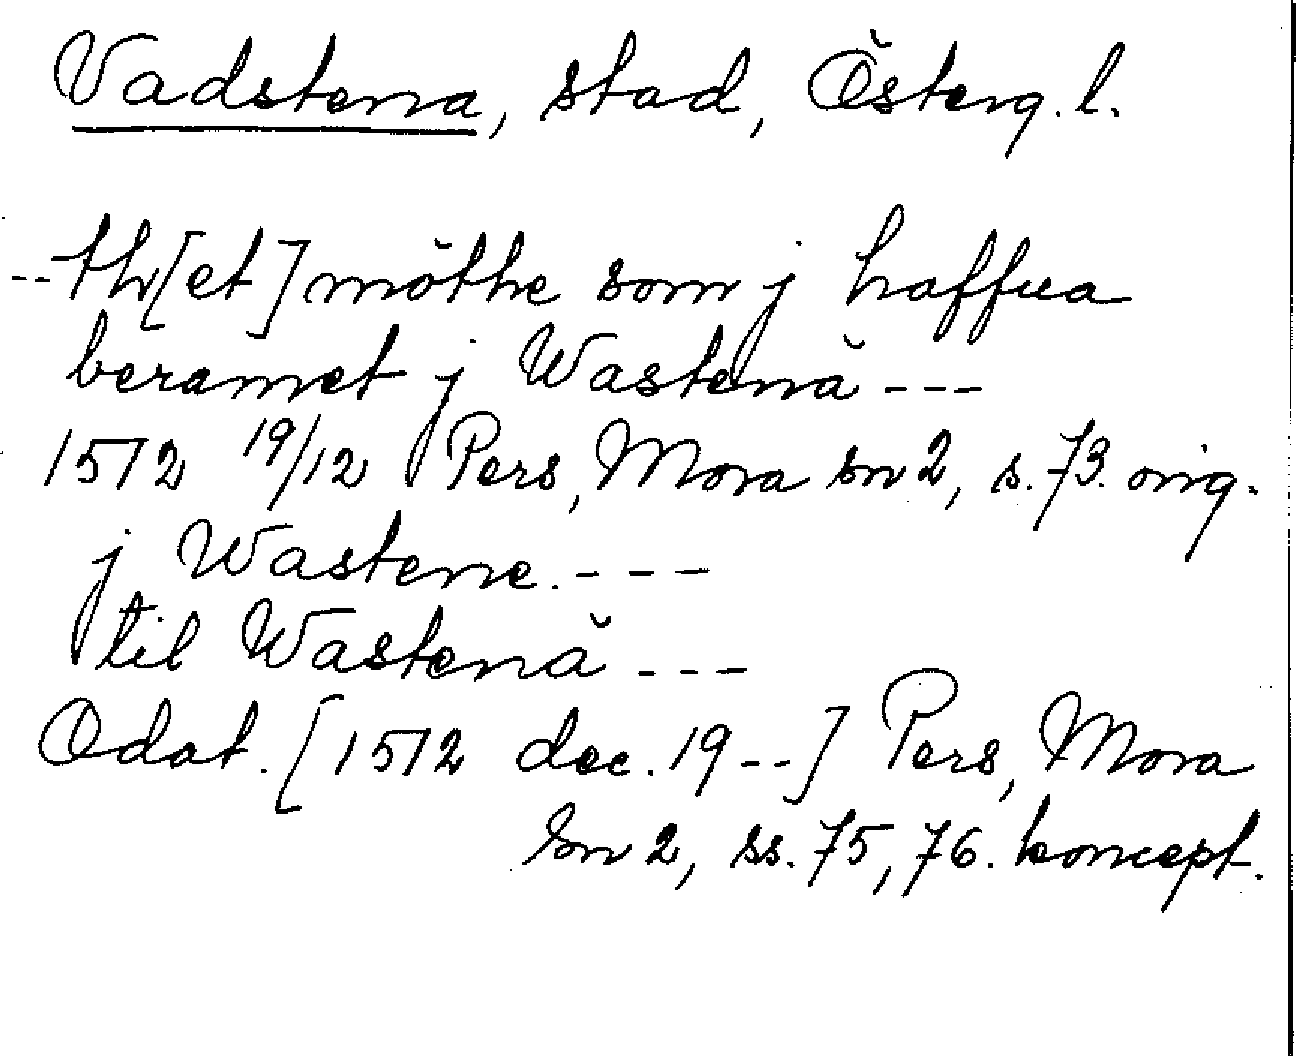 Vadstena, stad, Österg. l.
--th[et] möthe som j haffua
beramet j Wastenä ---
1572 19/12 Pers, Mora sn 2, s. 73. orig.
j Wastene. ---
til Wastenä ---
Odat. [1572 dec. 19 --] Pers, Mora
sn 2, ss. 75, 76. koncept.